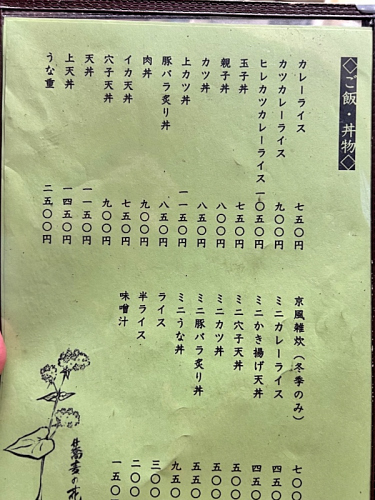 ◇ご飯・丼物◇
カレーライス 七五〇円
カツカレーライス 九〇〇円
ヒレカツカレーライス 一〇五〇円
玉子丼 七五〇円
親子丼 八〇〇円
カツ丼 八五〇円
上カツ丼 一一五〇円
豚バラ炙り丼 八五〇円
肉丼 九〇〇円
イカ天丼 七五〇円
穴子天丼 九〇〇円
天丼 一一五〇円
上天丼 一四五〇円
うな重 二五〇〇円
京風雑炊（冬季のみ） 七〇
ミニカレーライス 四五
ミニかき揚げ天丼 四五〇
ミニ穴子天丼 五〇
ミニカツ丼 五五〇
ミニ豚バラ炙り丼 五五〇
ミニうな丼 九五〇
ライス 三〇〇
半ライス 二〇〇
味噌汁 一五〇
蕎麦の花